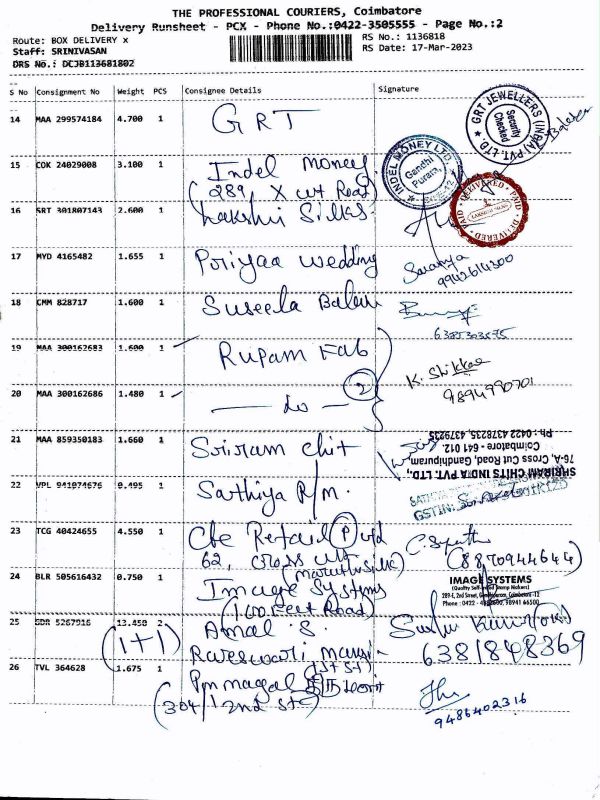 THE PROFESSIONAL COURIERS, Coimbatore
Delivery Runsheet - PCX - Phone No.:0422-3505555 - Page No.:2
Route: BOX DELIVERY x
RS No.: 1136818
Staff: SRINIVASAN
RS Date: 17-Mar-2023
DRS No.: DCJB113681802
S No Consignment No Weight PCS Consignee Details Signature
14 MAA 299574184 4.700 1 GRT
GRT JEWELLERS (INDIA) PVT. LTD
Security Checked
15 COK 24029008 3.100 1 Indel Money
(289, X cut Road)
INDEL MONEY LTD
Gandhi Puram
16 SRT 301807143 2.600 1 Lakshmi Silks
PAID DELIVERED PAID DELIVERED
17 MYD 4165482 1.655 1 Poriyaa wedding
Saranya
9942614300
18 CMM 828717 1.600 1 Suseela
19 MAA 300162683 1.600 1 Rupam Fab
20 MAA 300162686 1.480 1 — do — 2
K. Shikkae
9894990701
21 MAA 859350183 1.660 1 Sriram chit
SHRIRAM CHITS INDIA PVT. LTD.,
76-A, Cross Cut Road, Gandhipuram,
Coimbatore - 641 012.
Ph : 0422 4378235, 4379235
22 VPL 941974676 0.495 1 Sathiya R/m.
GSTIN:
23 TCG 40424655 4.550 1 Cbe Retail (P) Ltd
62, cross cut
(Maruthi silks)
(8870944644)
24 BLR 505616432 0.750 1 Image Systems
(100 Feet Road)
IMAGE SYSTEMS
(Quality Self-Inked Stamp Makers)
289-I, 2nd Street, Gandhipuram, Coimbatore -12
25 SDR 5267916 13.450 2 Amal . S
(1+1)
6381848369
26 TVL 364628 1.675 1
(304/1 2nd st)
9486402316